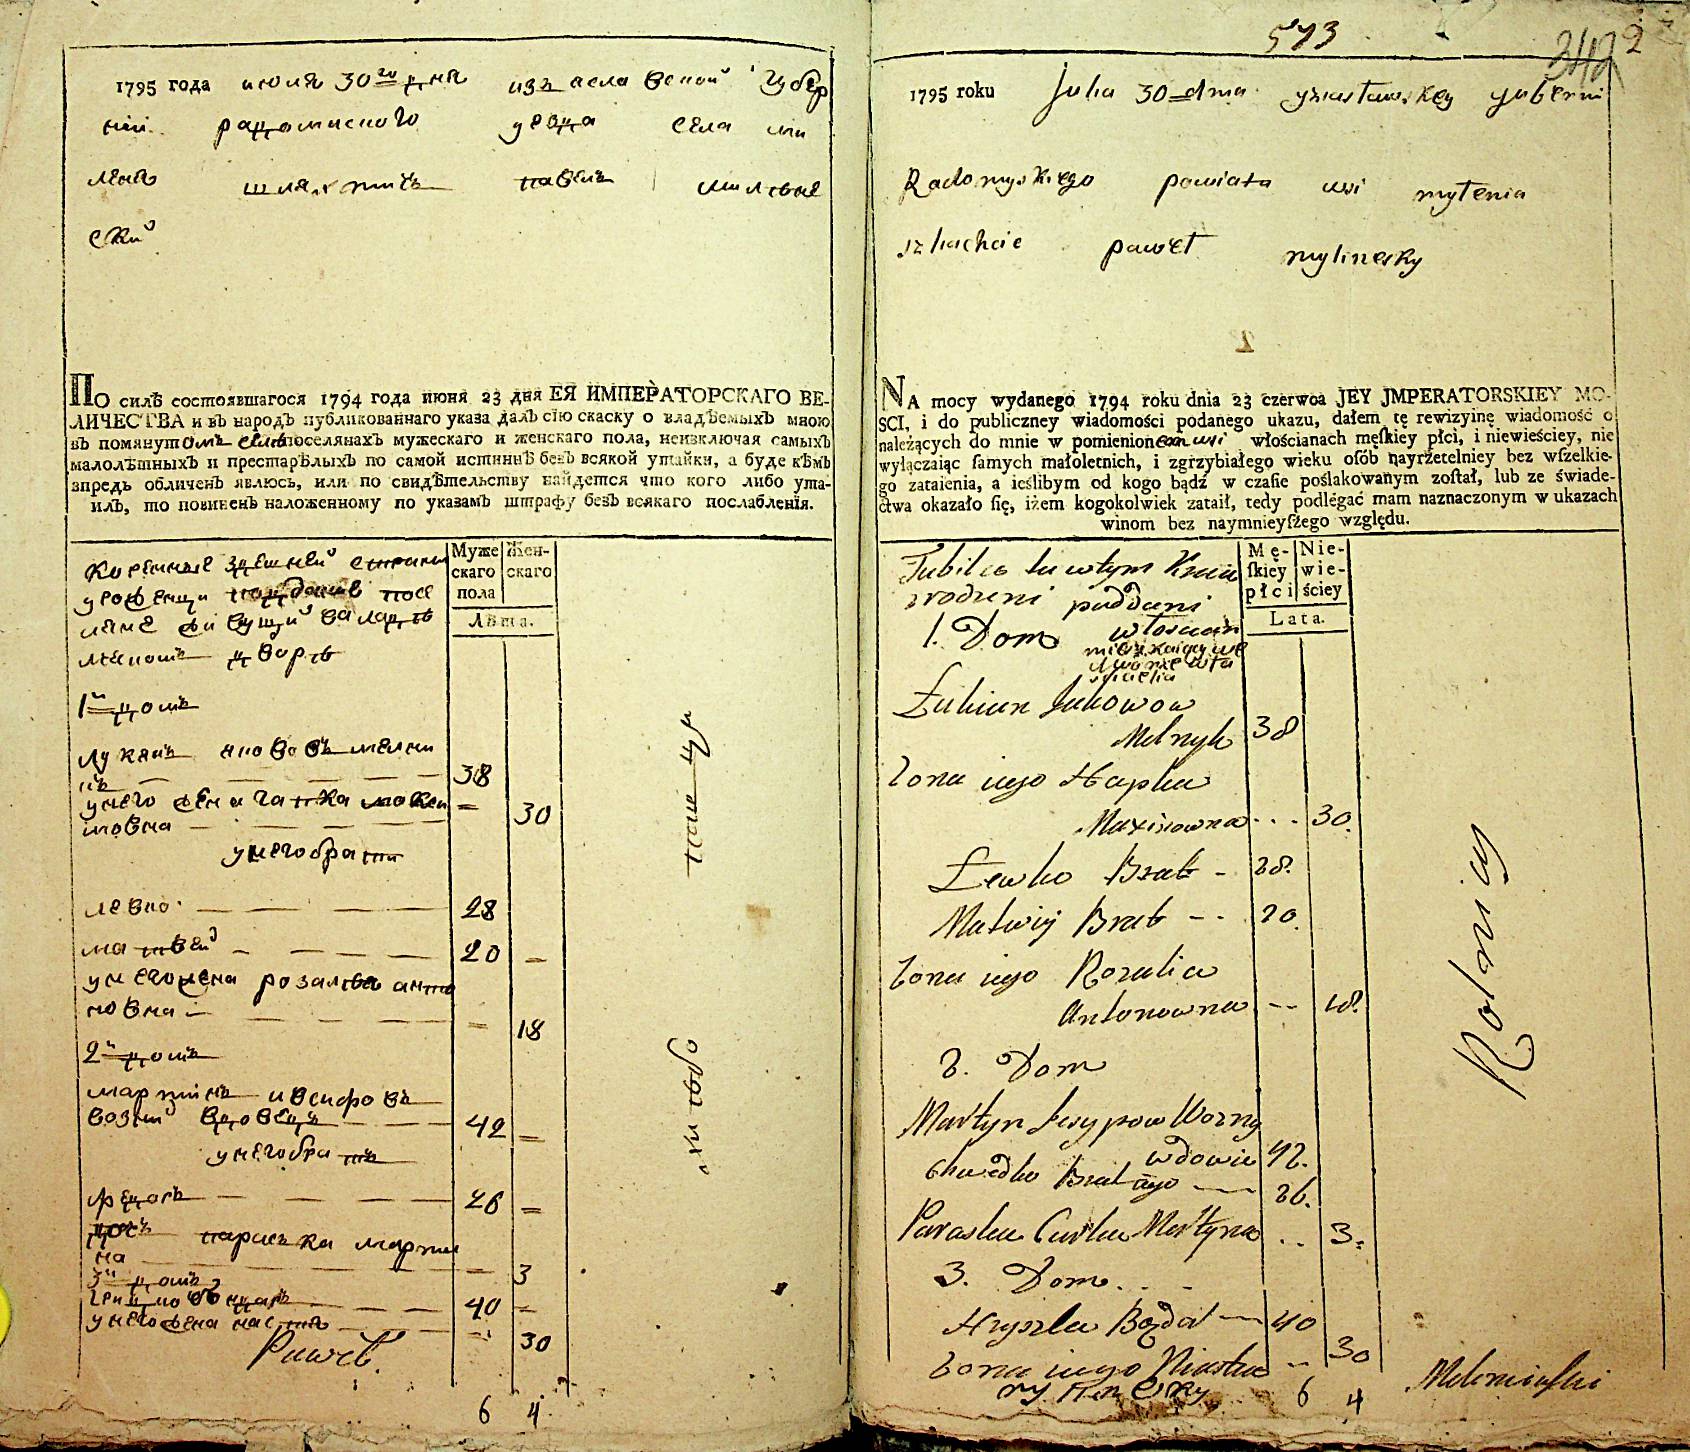 1795 года июля 30го дня изъ аславской губер
ніи радомисного уезда села ми
леня шляхтичъ павелъ милѣне
ский
ПО силѣ состоявшагося 1794 года июня 23 дня ЕЯ ИМПЕРАТОРСКАГО ВЕ-
ЛИЧЕСТВА и въ народъ публикованнаго указа далъ сію скаску о владѣемыхъ мною
въ помянутомъ селѣ поселянахъ мужескаго и женскаго пола, неизключая самыхъ
малолѣтныхъ и престарѣлыхъ по самой истиннѣ безъ всякой утайки, а буде кѣмъ
впредь обличенъ явлюсь, или по свидѣтельству найдется что кого либо ута-
илъ, то повиненъ наложенному по указамъ штрафу безъ всякаго послабленія.
Муже
скаго
пола
Жен-
скаго
Лѣта.
Коренные здешней страны
уроженци подданые посе
ляне
1й домъ
Лукянъ якововъ мелни
къ 38
у него жена гапка макси
мовна 30
у него браты
левко 28
матвей 20
у него жена розалия анто
новна 18
2й домъ
мартинъ иосифовъ
возний вдовецъ 42
у него братъ
федоръ 26
дочь параска марти
на 3
3й домъ
грицко боднаръ 40
у него жена настя 30
Paweł
6 4
пашутъ
573
342
2
1795 roku Julia 30 dnia yzasławskey guberni
Radomyskiego powiata wsi mylenia
szlachcic paweł mylinsky
NA mocy wydanego 1794 roku dnia 23 czerwca JEY JMPERATORSKIEY MO-
SCI, i do publiczney wiadomości podanego ukazu, dałem tę rewizyinę wiadomość o
należących do mnie w pomienionem wsi włościanach męſkiey płci, i niewieściey, nie
wyłączaiąc ſamych małoletnich, i zgrzybiałego wieku oſób nayrzetelniey bez wſzelkie-
go zataienia, a ieślibym od kogo bądź w czaſie poślakowanym zoſtał, lub ze świade-
ctwa okazało ſię, iżem kogokolwiek zataił, tedy podlegać mam naznaczonym w ukazach
winom bez naymnieyſzego względu.
Mę-
ſkiey
płci
Nie-
wie-
ściey
Lata.
Tubilco tu wtym Kraiu
zrodzeni poddani
1. Dom włoscian
mieszkaiący we
dworze
Łukian Jakowow
Melnyk 38
Zona iego Hapka
Maximowna 30.
Lewko Brat 28.
Matwiy Brat 20.
Zona iego Rozalia
Antonowna 18.
2. Dom
Martyn Jesypow Wozny
wdowiec 42.
Chwedko Brat iego 26.
Paraska Curka Martyna 3.
3. Dom
Hryszko Bodnar 40
Zona iego Nastia 30
mylinsky
6 4
Rolnicy